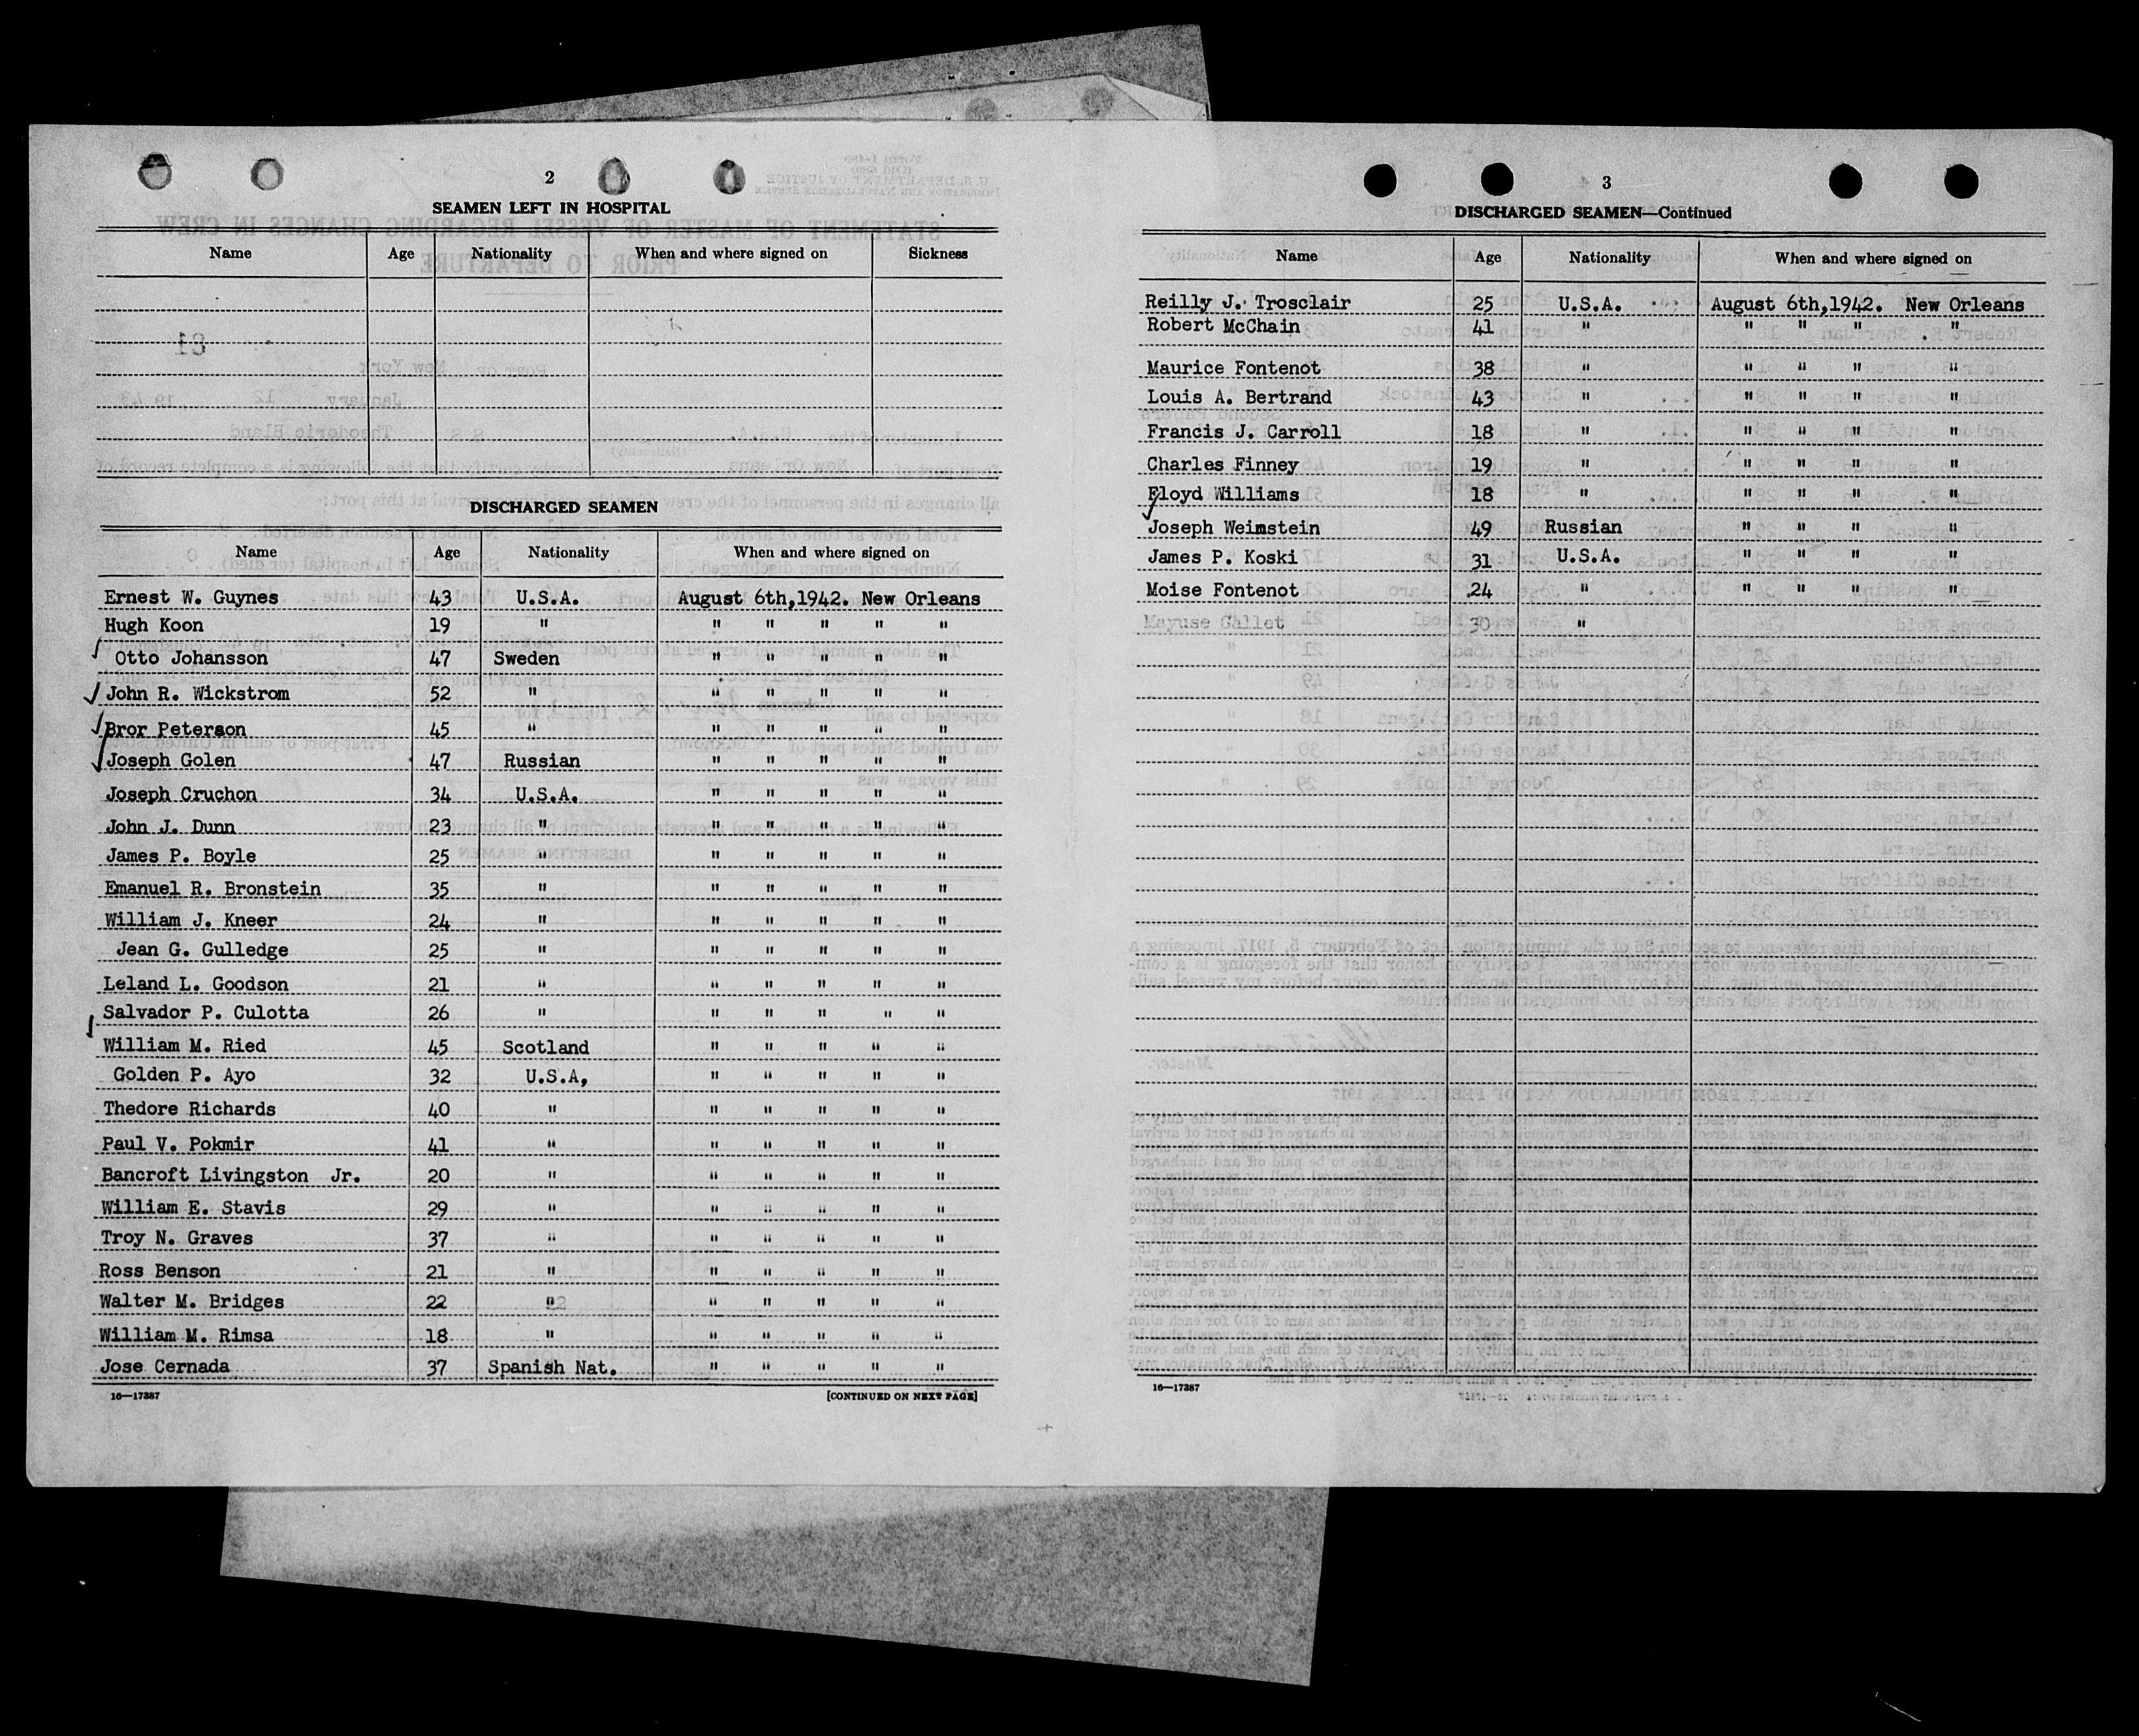 2
SEAMEN LEFT IN HOSPITAL
Name Age Nationality When and where signed on Sickness
DISCHARGED SEAMEN
Name Age Nationality When and where signed on
Ernest W. Guynes 43 U.S.A. August 6th,1942. New Orleans
Hugh Koon 19 " " " " " "
Otto Johansson 47 Sweden " " " " "
John R. Wickstrom 52 " " " " " "
Bror Peterson 45 " " " " " "
Joseph Golen 47 Russian " " " " "
Joseph Cruchon 34 U.S.A. " " " " "
John J. Dunn 23 " " " " " "
James P. Boyle 25 " " " " " "
Emanuel R. Bronstein 35 " " " " " "
William J. Kneer 24 " " " " " "
Jean G. Gulledge 25 " " " " " "
Leland L. Goodson 21 " " " " " "
Salvador P. Culotta 26 " " " " " "
William M. Ried 45 Scotland " " " " "
Golden P. Ayo 32 U.S.A, " " " " "
Thedore Richards 40 " " " " " "
Paul V. Pokmir 41 " " " " " "
Bancroft Livingston Jr. 20 " " " " " "
William E. Stavis 29 " " " " " "
Troy N. Graves 37 " " " " " "
Ross Benson 21 " " " " " "
Walter M. Bridges 22 " " " " " "
William M. Rimsa 18 " " " " " "
Jose Cernada 37 Spanish Nat. " " " " "
16—17387 [CONTINUED ON NEXT PAGE]
3
DISCHARGED SEAMEN—Continued
Name Age Nationality When and where signed on
Reilly J. Trosclair 25 U.S.A. August 6th,1942. New Orleans
Robert McChain 41 " " " " "
Maurice Fontenot 38 " " " " "
Louis A. Bertrand 43 " " " " "
Francis J. Carroll 18 " " " " "
Charles Finney 19 " " " " "
Floyd Williams 18 " " " " "
Joseph Weimstein 49 Russian " " " "
James P. Koski 31 U.S.A. " " " "
Moise Fontenot 24 " " " " "
Mayuse Gallet 30 "
16—17387